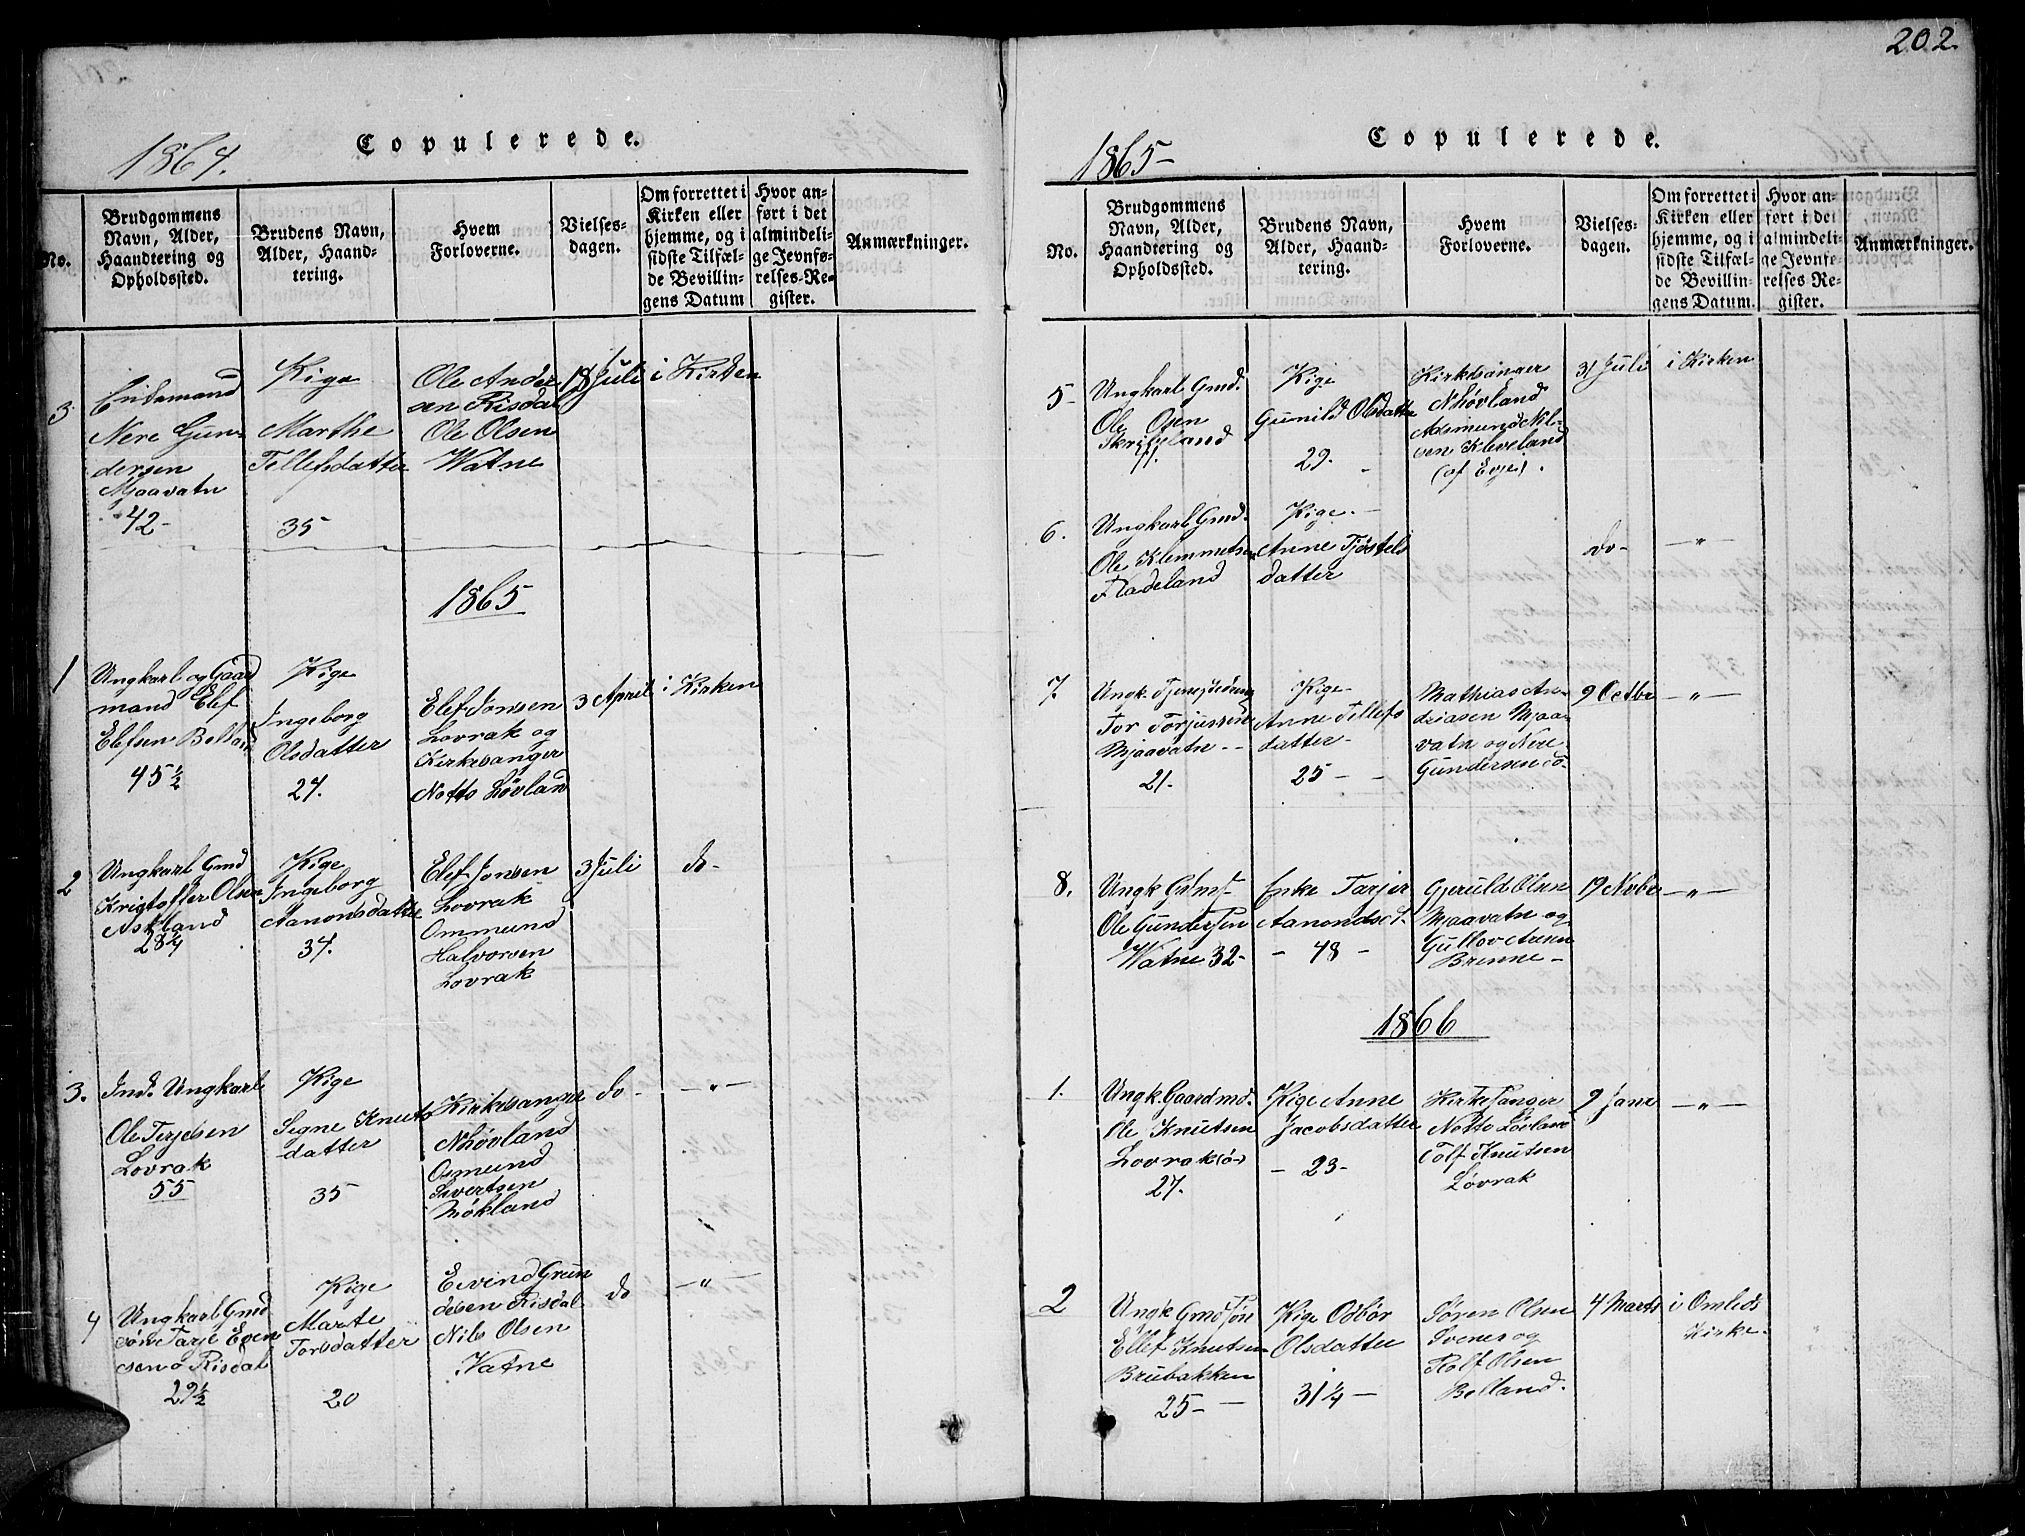 202.
1864.
Copulerede.
No.
Brudgommens
Navn, Alder,
Haandtering og
Opholdssted.
Brudens Navn,
Alder, Haand-
tering.
Hvem
Forloverne.
Vielses-
dagen.
Om forrettet i
Kirken eller
hjemme, og i
sidste Tilfæl-
de Bevillin-
gens Datum
Hvor an-
ført i det
almindeli-
ge Jevnfø-
relses-Re-
gister.
Anmærkninger.
3
Enkemand
Nere Gun-
dersen
Mjaavatn
42-
Pige
Marthe
Tellefsdatter
35
Ole Ander
sen Risdal
Ole Olsen
Watne
18 Juli
i Kirken
1865
1
Ungkarl og Gaard
mand Elef
Elefsen Belland
45½
Pige
Ingeborg
Olsdatter
27.
Elef Jonsen
Lovrak og
Kirkesanger
Notto Løvland
3 April
i Kirken
2
Ungkarl Gmd
Kristoffer Olsen
Askland
28¼
Pige
Ingeborg
Aanonsdatter
34.
Elef Jonsen
Lovrak
Ommund
Halvorsen
Lovrak
3 Juli
do-
3.
Ind. Ungkarl
Ole Terjesen
Lovrak
55
Pige
Segne Knuts
datter
35
Kirkesanger
N Løvland
Osmund
Sivertsen
Møkland
do -
— " —
4
Ungkarl Gmd
søn Tarje Even
sen ø Risdal
29½
Pige
Marte
Torsdatter
20
Evind Gun
dersen Risdal
Nils Olsen
Vatne
do
— "
1865-
Copulerede.
No.
Brudgommens
Navn, Alder,
Haandtering og
Opholdssted.
Brudens Navn,
Alder, Haand-
tering.
Hvem
Forloverne.
Vielses-
dagen.
Om forrettet i
Kirken eller
hjemme, og i
sidste Tilfæl-
de Bevillin-
gens Datum.
Hvor an-
ført i det
almindeli-
ge Jevnfø-
relses-Re-
gister.
Anmærkninger.
5-
Ungkarl Gmd.
Ole Osen
Skripeland
Pige
Gunild Olsdatter
29.
Kirkesanger
N Løvland
Aasmund Nil-
sen Kleveland
(af Evje).
31 Juli
i Kirken
6.
Ungkarl Gmd.
Ole Klemmetsen
Fladeland
Pige. -
Anne Tjøstels
datter
do-
— " —
7.
Ungk. Tjenestedreng
Tor Torjussen
Mjaavatn --
21.
Pige-
Anne Tellefs
datter-
25 -
Mathias An-
driasen Mjaa-
vatn og Nere
Gundersen do-
9 Octbr
— " —
8.
Ungk.
Ole Gundersen
Watne 32-
Enke Tarjer
Aanondsd.
- 48 -
Gjeruld Olsen
Mjaavatn og
Gullov Aasen
Brenne-
19 Nvbr
— " —
1866
1.
Ungk. Gaardmd.
Ole Knutsen
Lovrak (ø-)
27.
Pige Anne
Jacobsdatter
- 23-
Kirkesanger
Notto Løvland
Tolf Knutsen
Løvrak
2 Janr
— " —
2
Ungk Gmdsøn
Ellef Knutsen
Brubakken
25-
Pige Odbør
Olsdatter
31¼ —
Søren Olsen
Svenes og
Rolf Olsen
Belland.
4 Marts
i Omlids
Kirke.